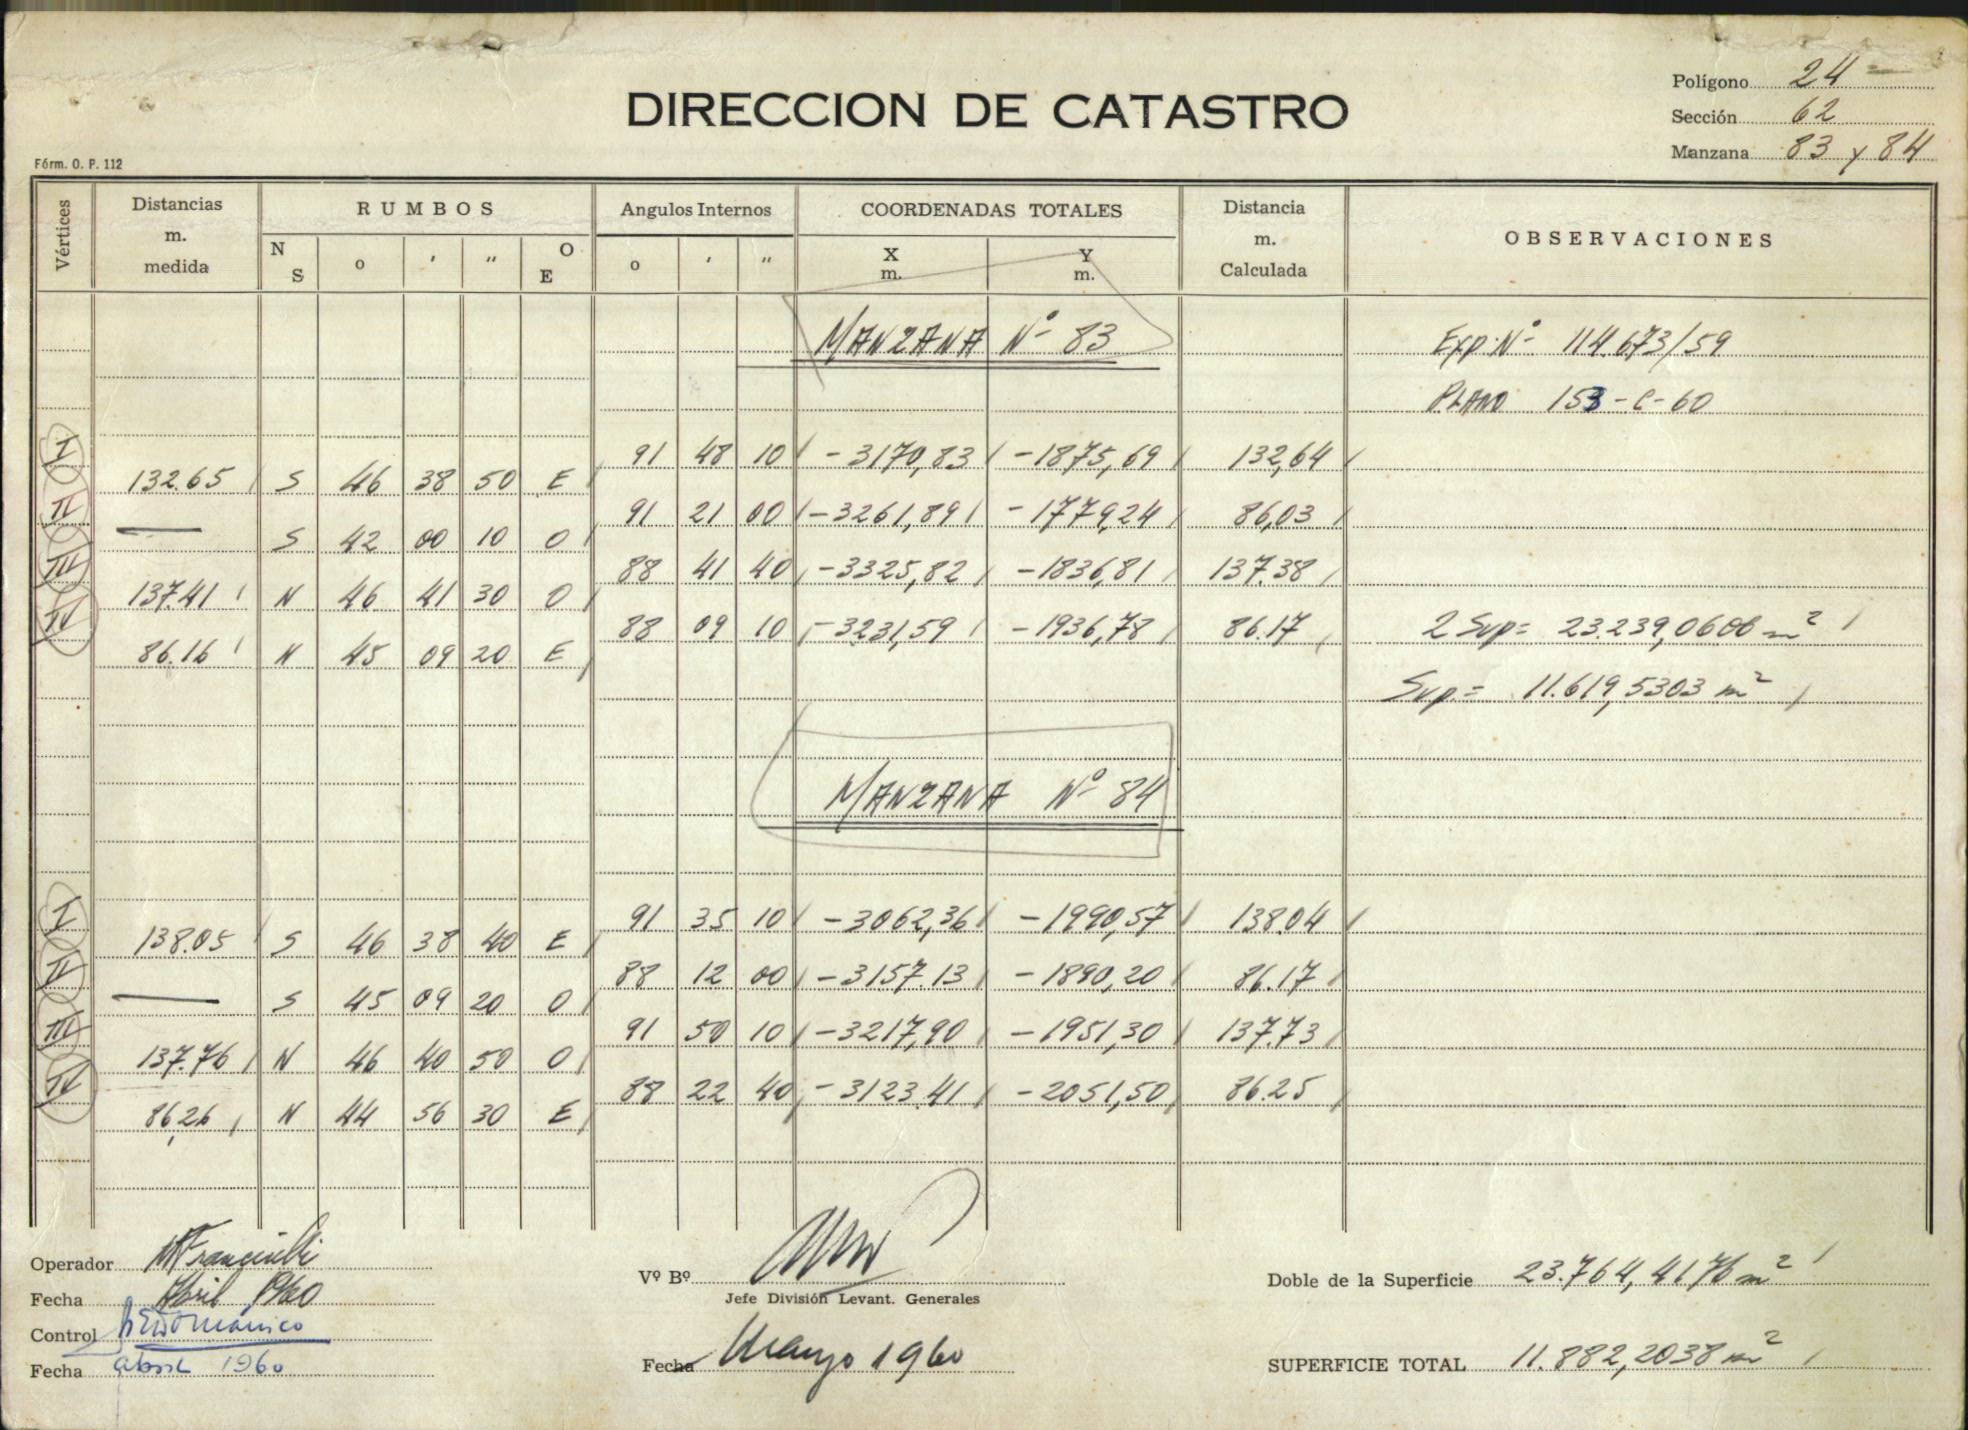 Polígono 24
Sección 62
Manzana 83 y 84
DIRECCION DE CATASTRO
Fórm. O. P. 112
Vértices Distancias m. medida RUMBOS N S o ' " O E Angulos Internos o ' " COORDENADAS TOTALES X m. Y m. Distancia m. Calculada OBSERVACIONES
MANZANA Nº 83 Exp. Nº 114.673/59
PLANO 153-C-60
I 91 48 10 -3170,83 -1875,69 132,64
132.65 S 46 38 50 E
II 91 21 00 -3261,89 -1779,24 86,03
— S 42 00 10 O
III 88 41 40 -3325,82 -1836,81 137.38
137.41 N 46 41 30 O
IV 88 09 10 -3231,59 -1936,78 86.17 2 Sup= 23.239,0606 m²
86.16 N 45 09 20 E
Sup.= 11.619,5303 m²
MANZANA Nº 84
I 91 35 10 -3062,36 -1990,57 138.04
138.05 S 46 38 40 E
II 88 12 00 -3157.13 -1890,20 86.17
— S 45 09 20 O
III 91 50 10 -3217,90 -1951,30 137.73
137.76 N 46 40 50 O
IV 88 22 40 -3123.41 -2051,50 86.25
86,26 N 44 56 30 E
Operador
Fecha Abril 1960
Control
Fecha abril 1960
Vº Bº
Jefe División Levant. Generales
Fecha Marzo 1960
Doble de la Superficie 23.764,4176 m²
SUPERFICIE TOTAL 11.882,2038 m²